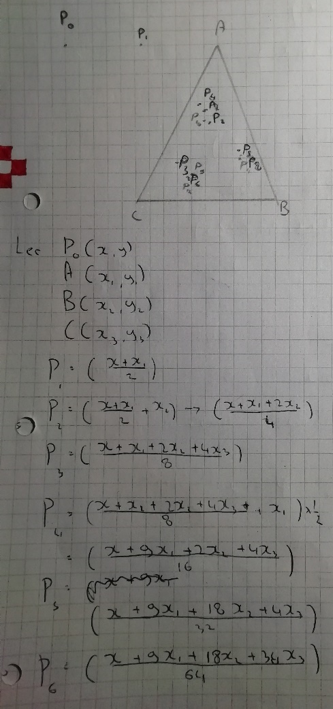 P₀
P₁
A
C
B
P₀(x,y)
A(x₁,y₁)
B(x₂,y₂)
C(x₃,y₃)
P₁=((x+x₁)/2)
P₂=((x+x₁)/2 + x₂) → ((x+x₁+2x₂)/4)
P₃=((x+x₁+2x₂+4x₃)/8)
P₄=((x+x₁+2x₂+4x₃)/8 + x₁)×1/2
=((x+9x₁+2x₂+4x₃)/16)
P₅=
((x+9x₁+18x₂+4x₃)/32)
P₆=((x+9x₁+18x₂+36x₃)/64)